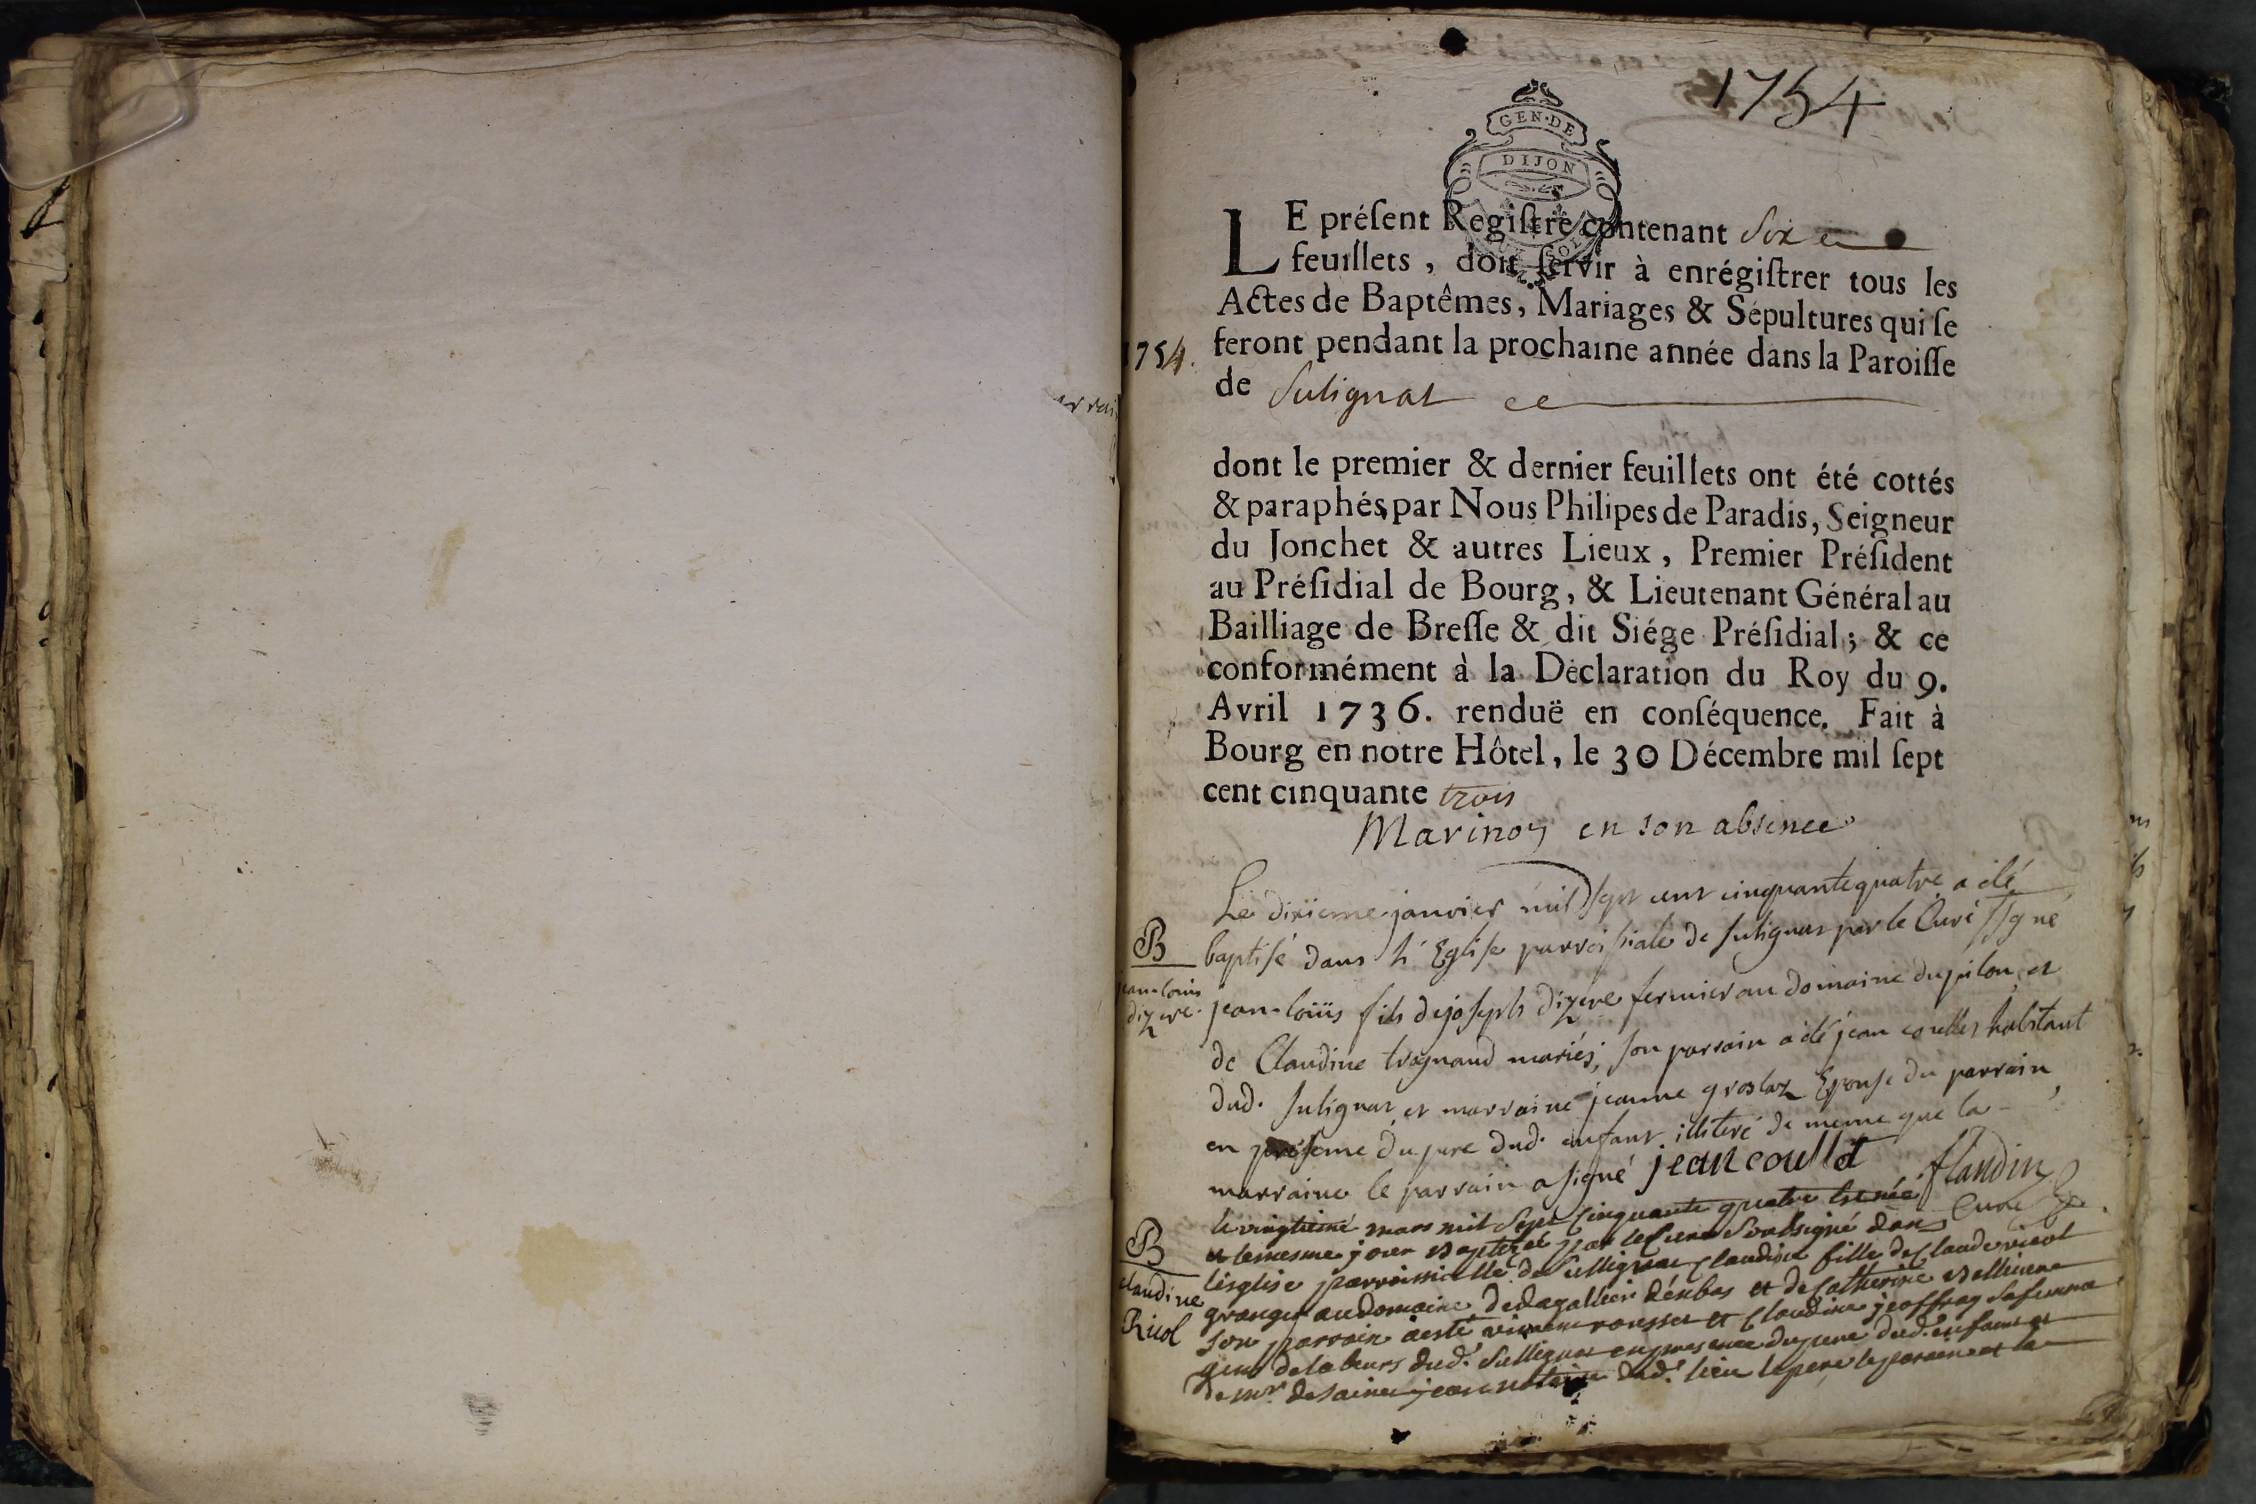 1754
GEN·DE
DIJON
LE préſent Regiſtre contenant Six
feuillets, doit ſervir à enrégiſtrer tous les
Actes de Baptêmes, Mariages & Sépultures qui ſe
feront pendant la prochaine année dans la Paroiſſe
1754.
de Sulignat
dont le premier & dernier feuillets ont été cottés
& paraphés par Nous Philipes de Paradis, Seigneur
du Jonchet & autres Lieux, Premier Préſident
au Préſidial de Bourg, & Lieutenant Général au
Bailliage de Breſſe & dit Siége Préſidial; & ce
conformément à la Déclaration du Roy du 9.
Avril 1736. renduë en conſéquence. Fait à
Bourg en notre Hôtel, le 30 Décembre mil ſept
cent cinquante trois
en son absence
Le dixieme janvier mil sept cent cinquante quatre a été
B
baptisé dans l'Eglise parroissiale de sulignat par le Curé ssgné
jean-louis
dizere.
jean-loüis fils de joseph dizere fermier au domaine du pilon et
de Claudine tragnaud mariés; son parrain a été jean coullet habitant
dud. sulignat et marraine jeanne groslaz Epouse du parrain,
en présence du pere dud. enfant illiteré de meme que la
marraine le parrain a signé jean coullet flandin
Curé
le vingtieme mars mil sept cinquante quatre
et le mesme jour par le Curé Soubsigné dans
B
claudine
Ricol
l'esglise parroissialle de Sullignat Claudine fille de Claude ricol
granger au domaine de et de Catherine
son parrain a esté rousset et Claudine jeoffray sa femme
dud. Sullignat en presence du pere dud. enfant et
de mr. de saint jean dud. lieu le pere le parrain et la